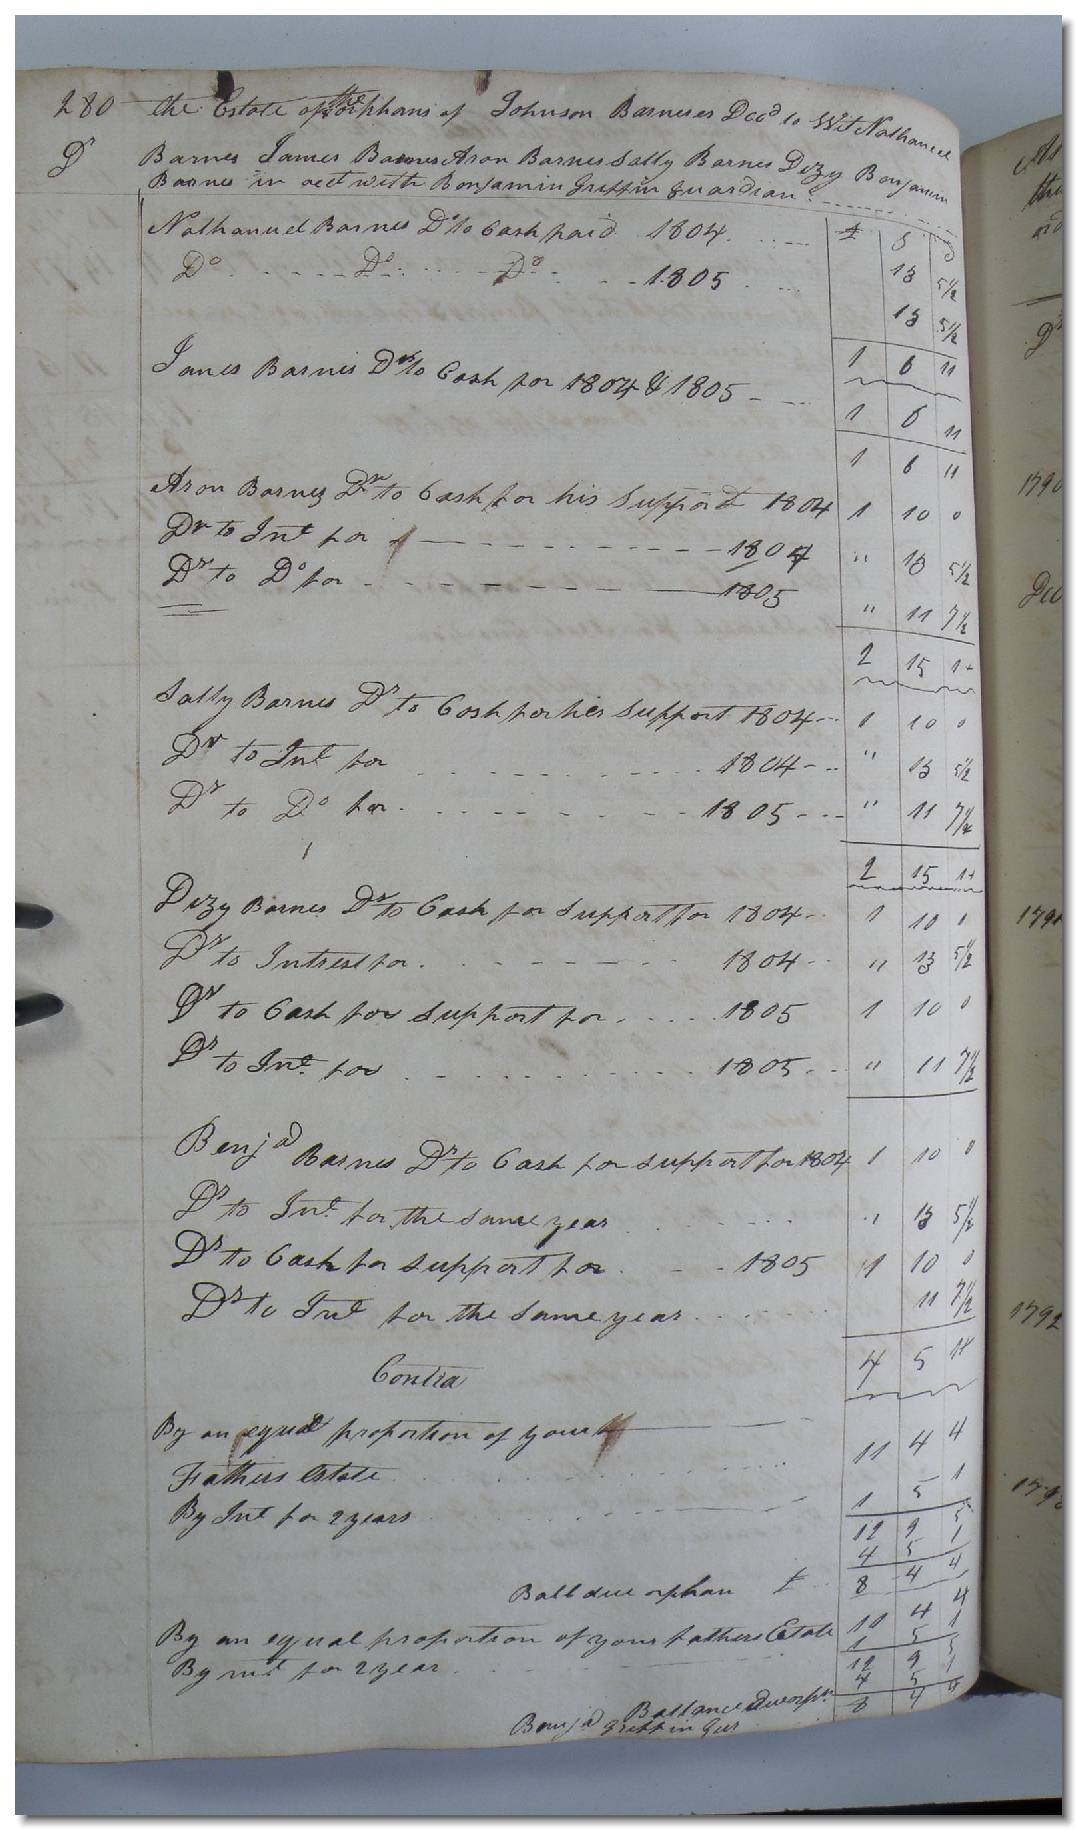 280 the Estate of the orphans of Johnson Barneses Decd to Wit Nathaneel
Dr Barnes James Barnes Aron Barnes Sally Barnes Dizy Benjamin
Barnes in acct with Benjamin Griffin Guardian
£ S D
Nathanuel Barnes Dr to Cash paid 1804
13 5½
Do Do Do 1805
13 5½
1 6 11
James Barnes Dr to Cash for 1804 & 1805
1 6 11
1 6 11
Aron Barnes Dr to Cash for his Support 1804 1 10 0
Dr to Int for 1804 " 13 5½
Dr to Do for 1805 " 11 7½
2 15 1
Sally Barnes Dr to Cash for her Support 1804 1 10 0
Dr to Int for 1804 " 13 5½
Dr to Do for 1805 " 11 7½
2 15 1
Dizy Barnes Dr to Cash for Support for 1804 1 10 0
Dr to Intrest for 1804 " 13 5½
Dr to Cash for Support for 1805 1 10 0
Dr to Int. for 1805 " 11 7½
Benja Barnes Dr to Cash for support for 1804 1 10 0
Dr to Int. for the same year " 13 5½
Dr to Cash for support for 1805 1 10 0
Dr to Int for the same year 11 7½
4 5 1
Contra
By an equal proportion of your
Fathers Estate 11 4 4
By Int for 2 years 1 5 1
12 9 5
4 5 1
Ball due orphan £ 8 4 4
By an equal proportion of your fathers Estate 10 4 4
By int for 2 year 1 5 1
12 9 5
4 5 1
Ballance due orphn 8 4 4
Benja Griffin Gur
Dr
1790
1792